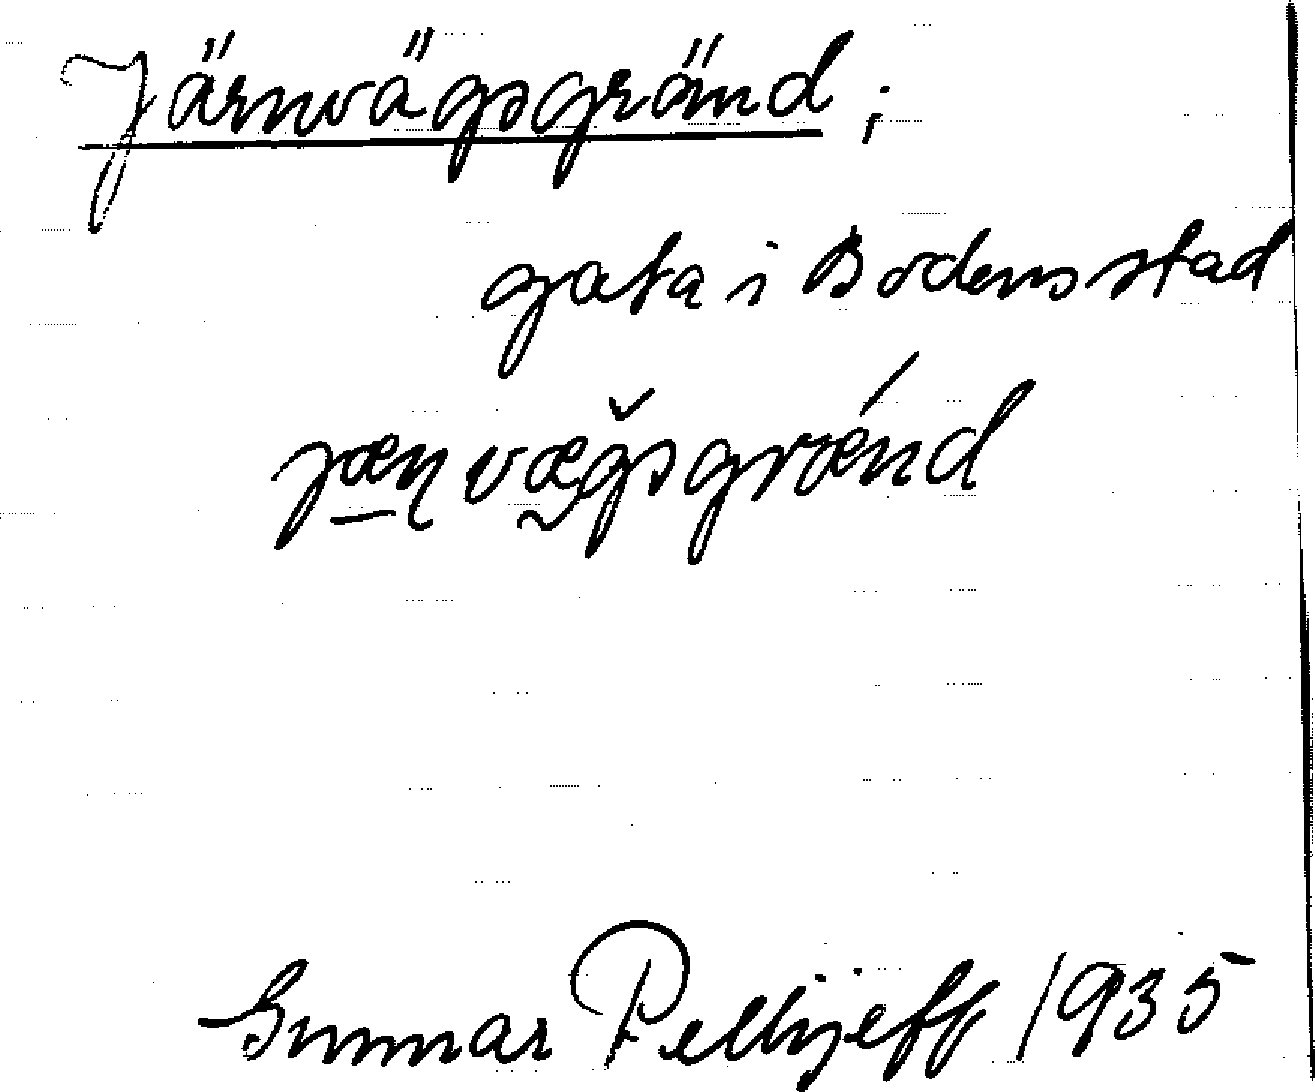 Järnvägsgränd;
gata i Bodens stad
jæṇvægsgrænd
Gunnar Pellijeff 1935